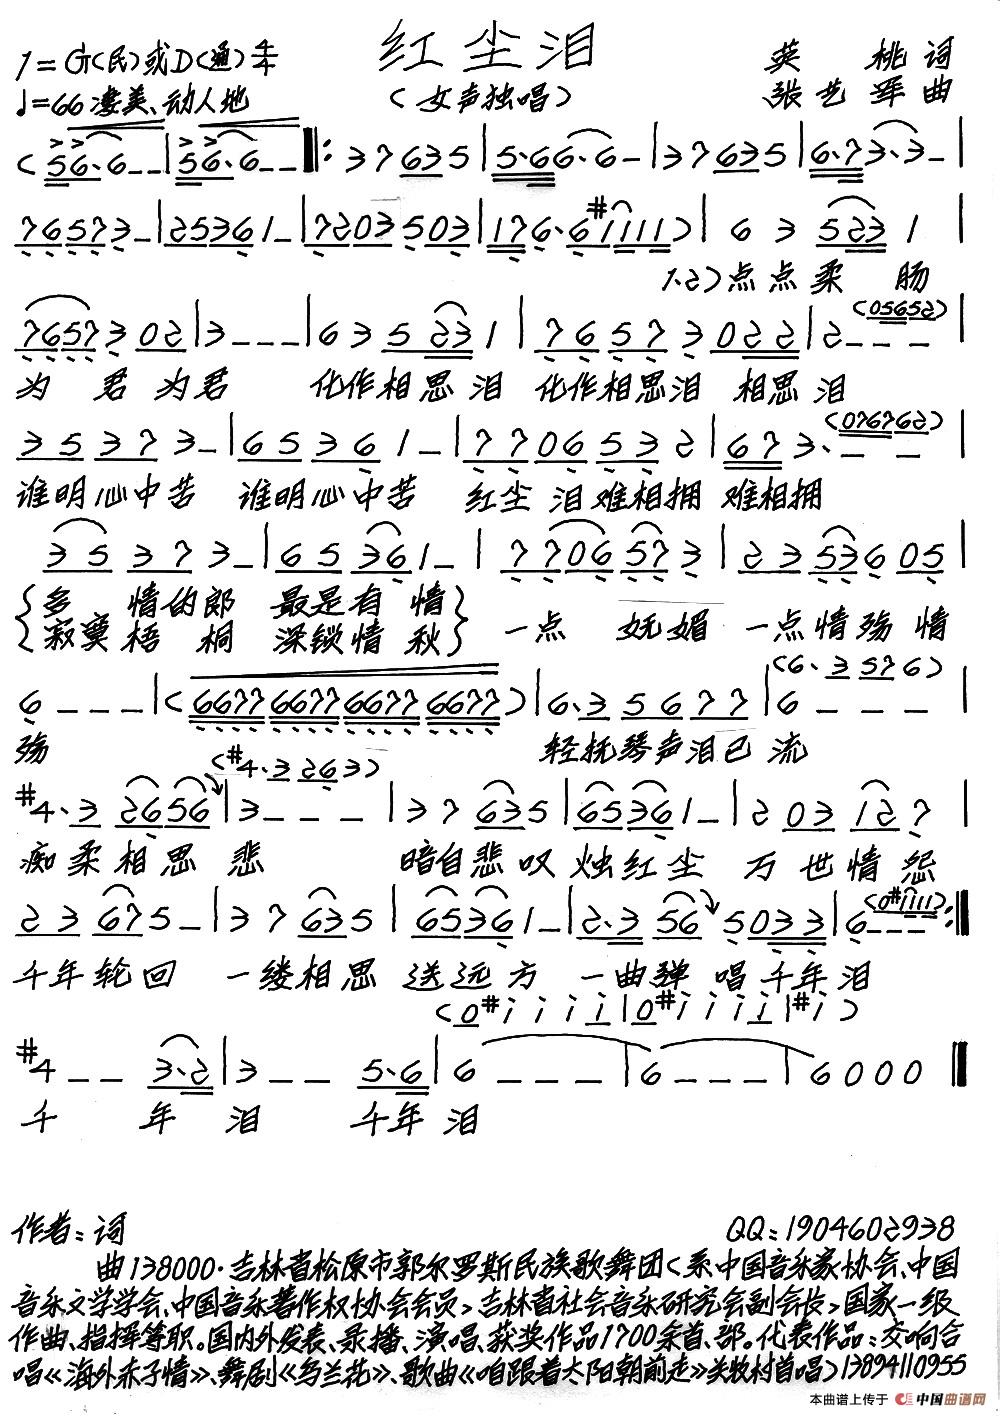 红尘泪
1=G(民)或D(通)4/4
英 桃词
♩=66 凄美、动人地
(女声独唱)
张艺军曲
(56·6--|56·6--‖:37635|5·66·6-|37635|6·73·3-|
76573-|25361-|7203503|176·6#1111)|635231|
1.2)点点柔 肠
7657302|3---|635231|76573022|2---|
(05652)
为 君 为君 化作相思泪 化作相思泪 相思泪
35373-|65361-|7706532|673·--|
(076762)
谁明心中苦 谁明心中苦 红尘 泪难相拥 难相拥
35373-|65361-|7706573|2353605|
{多 情的郎 最是有 情}
{寂寞梧 桐 深锁情 秋}
一点 妩媚 一点情殇 情
(6·3576)
6---|(6677 6677 6677 6677)|6·35677|6---|
殇 轻抚琴声泪已流
(#4·3263)
#4·32656|3---|37635|65361-|203127|
痴柔相思 悲 暗自悲叹 烛红尘 万世情怨
(0#1111)
23675-|37635|65361-|2·3565033|6---:‖
千年轮回 一缕相思 送远方 一曲弹 唱千年泪
(0#iiiii|0#iiiii|#i)
#4--3·2|3--5·6|6---|6---|6000‖
千 年 泪 千年泪
作者:词
QQ:1904602938
曲138000·吉林省松原市郭尔罗斯民族歌舞团(系中国音乐家协会、中国
音乐文学学会、中国音乐著作权协会会员>吉林省社会音乐研究会副会长>国家一级
作曲、指挥等职。国内外发表、录播、演唱、获奖作品1700余首、部。代表作品:交响合
唱《海外赤子情》、舞剧《乌兰花》、歌曲《咱跟着太阳朝前走》关牧村首唱)13894110955
本曲谱上传于 中国曲谱网